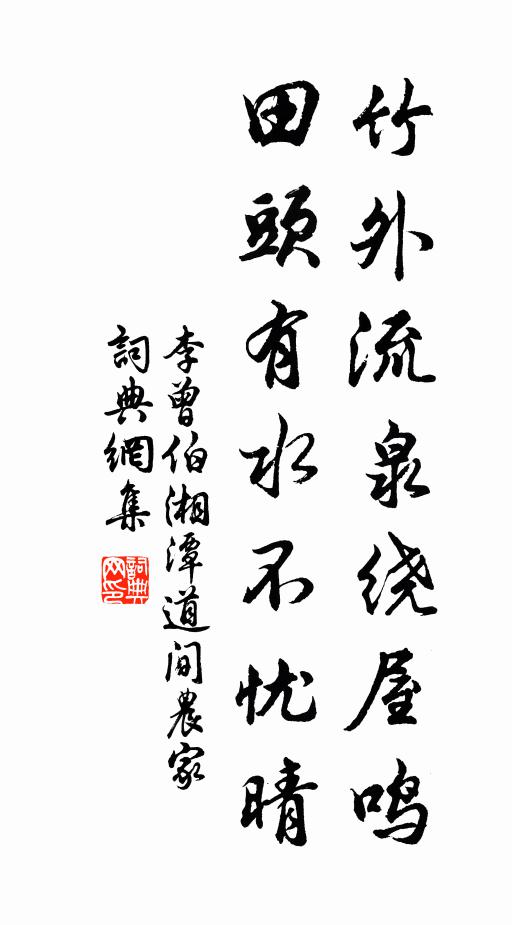 竹外流泉绕屋鸣
田頭有水不忧晴
李曾伯湘潭道间農家
詞典網集
詞典网印